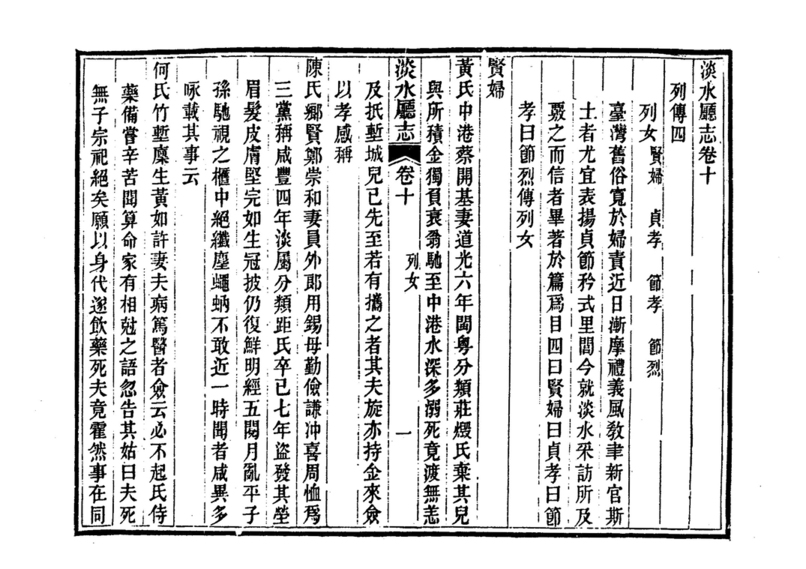 淡水廳志卷十
列傳四
列女 賢婦 貞孝 節孝 節烈
臺灣舊俗寬於婦責近日漸摩禮義風教聿新官斯
土者尤宜表揚貞節矜式里閭今就淡水采訪所及
覈之而信者畢著於篇為目四曰賢婦曰貞孝曰節
孝曰節烈傳列女
賢婦
黃氏中港蔡開基妻道光六年閩粵分類莊燬氏棄其兒
與所積金獨負衰翁馳至中港水深多溺死竟渡無恙
淡水廳志 卷十 列女 一
及抵塹城兒已先至若有攜之者其夫旋亦持金來僉
以孝感稱
陳氏鄉賢鄭崇和妻員外郎用錫母勤儉謙冲喜周恤為
三黨稱咸豐四年淡屬分類距氏卒已七年盜發其塋
眉髮皮膚堅完如生冠披仍復鮮明經五閱月亂平子
孫馳視之櫃中絕纖塵蠅蚋不敢近一時聞者咸異多
咏載其事云
何氏竹塹廩生黃如許妻夫病篤醫者僉云必不起氏侍
藥備嘗辛苦聞算命家有相尅之語忽告其姑曰夫死
無子宗祀絕矣願以身代遂飲藥死夫竟霍然事在同